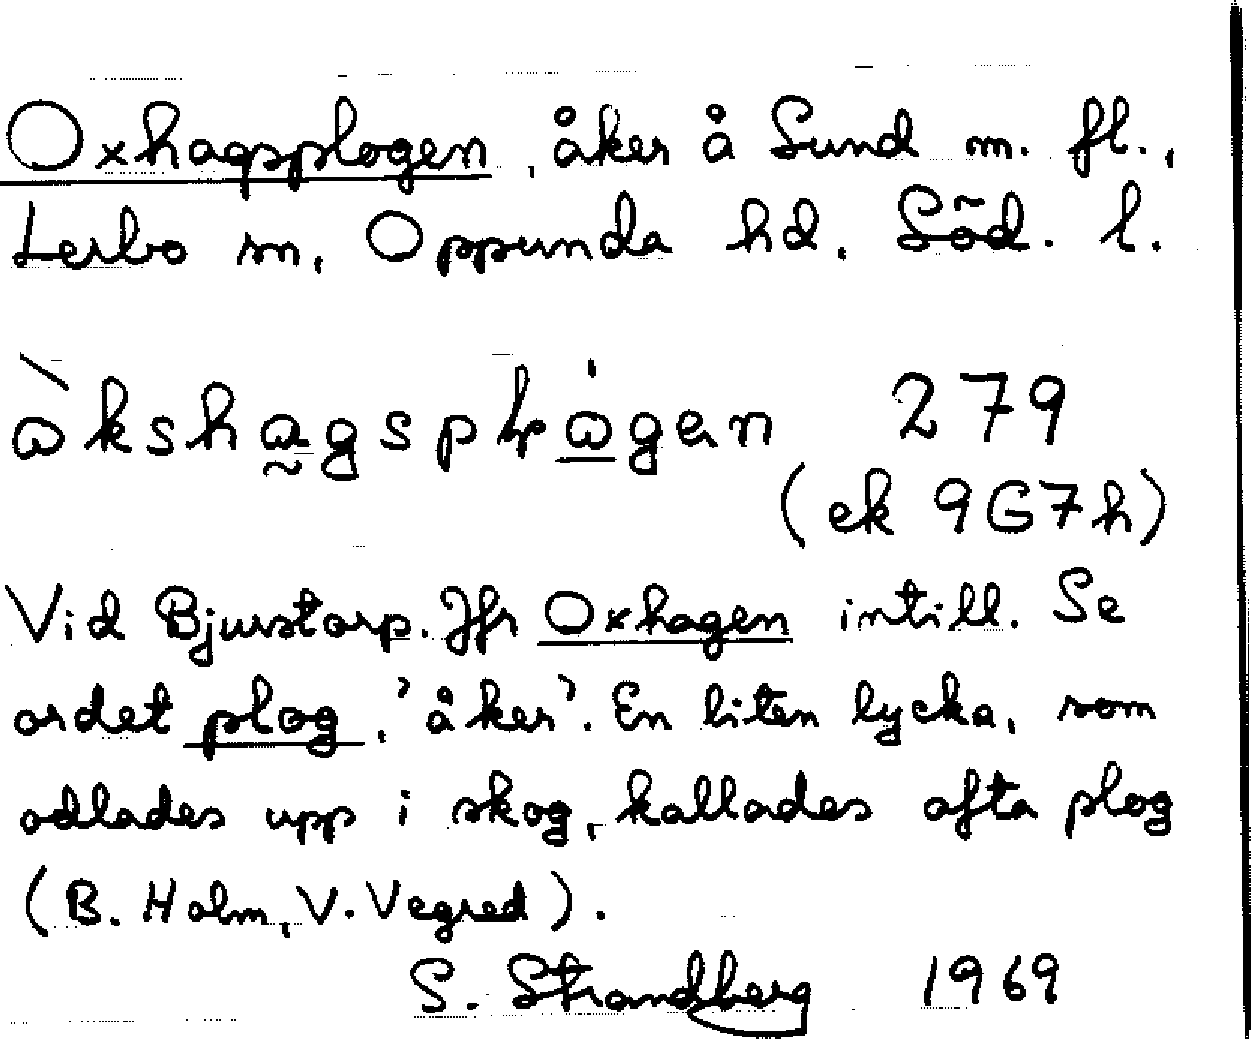 Oxhagsplogen, åker å Sund m. fl.,
Lerbo sn, Oppunda hd. Söd. l.
279
(ek 9G7h)
Vid Bjurstorp. Jfr Oxhagen intill. Se
ordet plog, 'åker'. En liten lycka, som
odlades upp i skog, kallades ofta plog
(B. Holm, V. Vegred).
S. Strandberg 1969